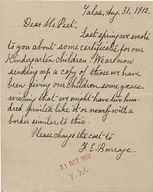 Talas, Aug. 31, 1912.
Dear Mr. Peet,
Last spring we wrote
to you about some certificates for our
Kindergarten children. We are now
sending you a copy of those we have
been giving our children some years
wishing that we might have two hun-
dred printed like it or nearly with a
border similar to this.
Please charge the cost to
F. E. Burrage.
21 OCT 1912